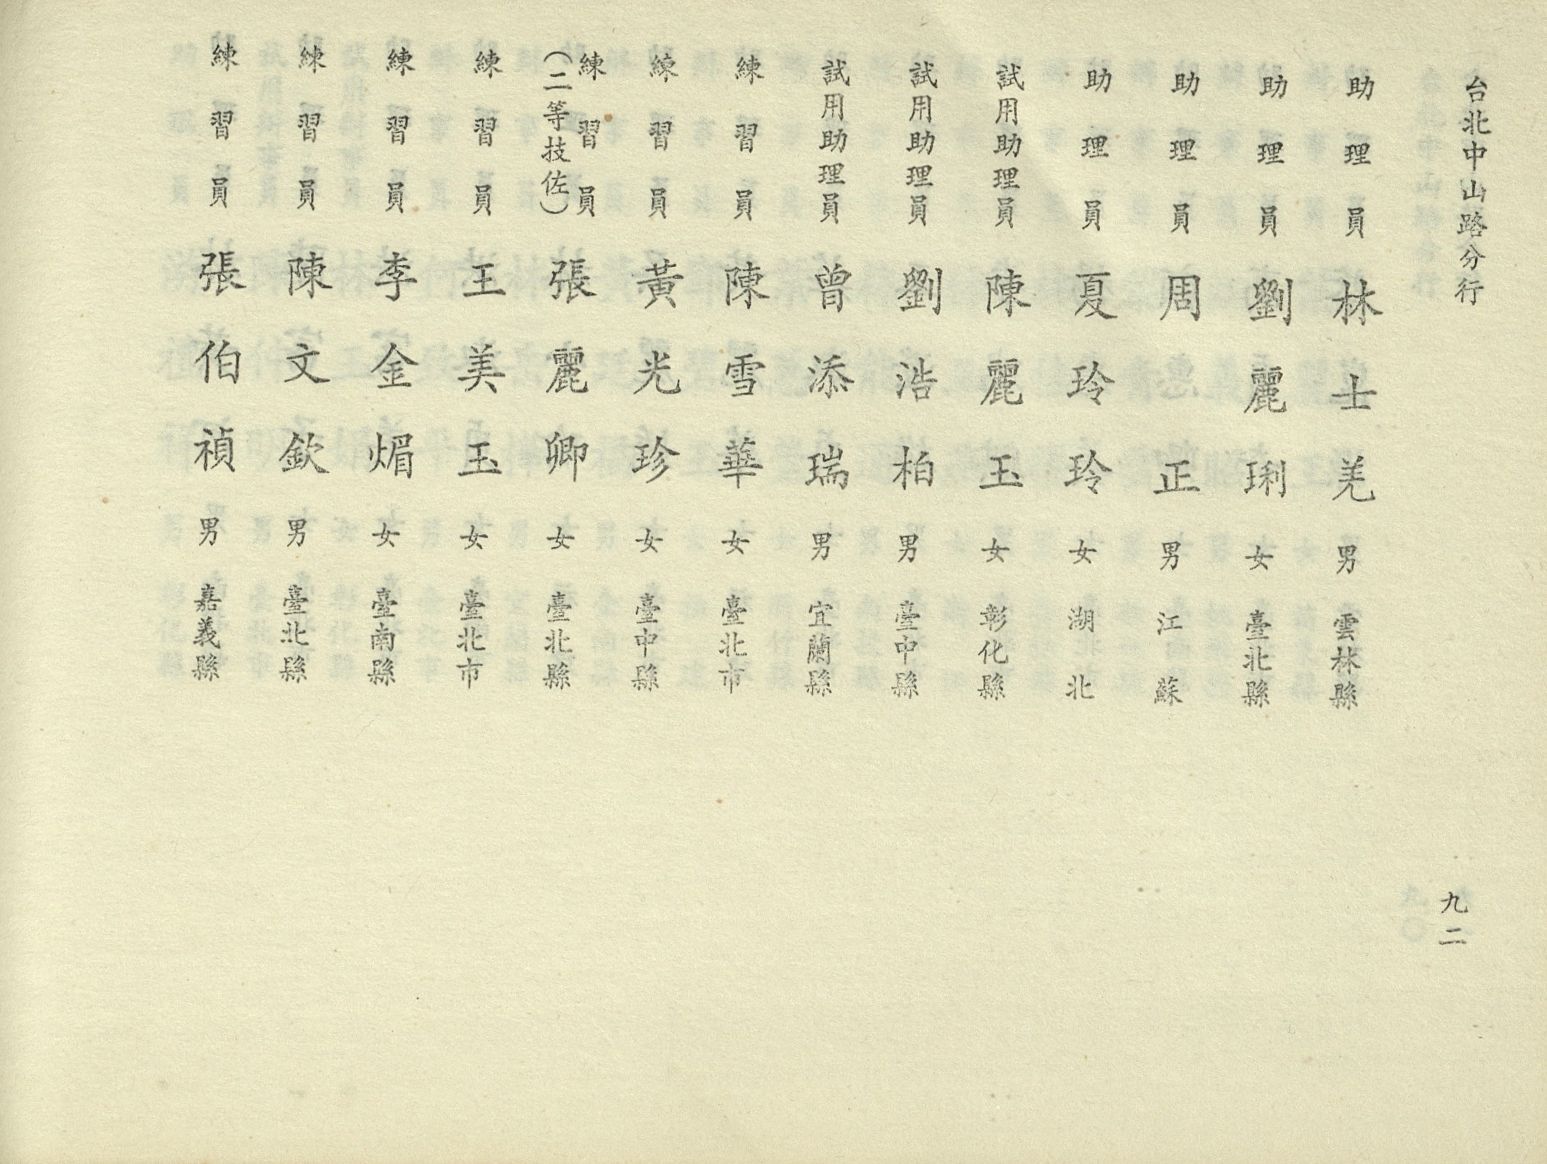 台北中山路分行
助理員 林士羌 男 雲林縣
助理員 劉麗琍 女 臺北縣
助理員 周正 男 江蘇
助理員 夏玲玲 女 湖北
試用助理員 陳麗玉 女 彰化縣
試用助理員 劉浩柏 男 臺中縣
試用助理員 曾添瑞 男 宜蘭縣
練習員 陳雪華 女 臺北市
練習員 黃光珍 女 臺中縣
練習員(二等技佐) 張麗卿 女 臺北縣
練習員 王美玉 女 臺北市
練習員 李金煝 女 臺南縣
練習員 陳文欽 男 臺北縣
練習員 張伯禎 男 嘉義縣
九二